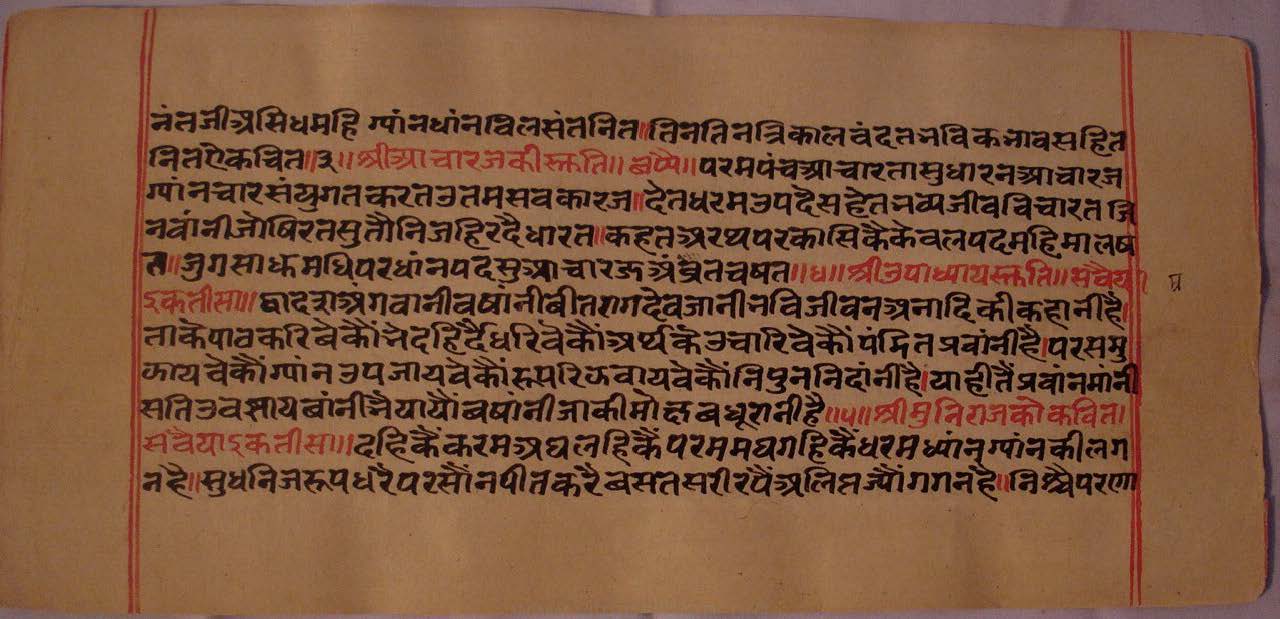 नंतजीअसिधमहि ग्यांनधांनविलसंतनित॥तिनतिनत्रिकालवंदतभविकभावसहित
नितऐकचित॥३॥श्रीआचारजकीस्तुति॥छप्पै॥परमपंचआचारतासुधारनआचारज
ग्यांनचारसंयुगतकरतउतमसवकारज॥देतधरमउपदैसहेतभव्यजीवविचारतजि
नवांनीजोषिरतसुतौनिजहिरदैधारत॥कहतअरथपरकासिकैकेवलपदमहिमालष
त॥जुगसाधमधिपरधांनपदसुआचारज चषत॥४॥श्रीउपाध्यायस्तुति॥सवैया
इकतीसा॥द्वादशअंगवानीवषांनीवीतरागदेवजानीभविजीवनअनादिकीकहानीहै।
ताकेपाठकरिबेकौं हिर्दैधरिवेकौंअर्थकेउचारिवेकौंपंडितप्रवांनीहै।परसमु
झायवेकौंग्यांनउपजायवेकौंरूपरिझवायवेकौंनिपुननिदांनीहै।याहीतैंप्रवांनमांनी
सतिउवझायबांनीभैयायौंबषांनीजाकीमोक्षबधूरानीहै॥५॥श्रीमुनिराजकौकविता
सवैयाइकतीसा॥दहिकैंकरमअघलहिकैंपरममघगहिकैंधरमध्यांनग्यांनकीलग
नहै॥सुधनिजरूपधरैपरसौंनपीतकरैबसतसरीरपैंअलिप्तज्यौंगगनहै॥निश्चैपरणा